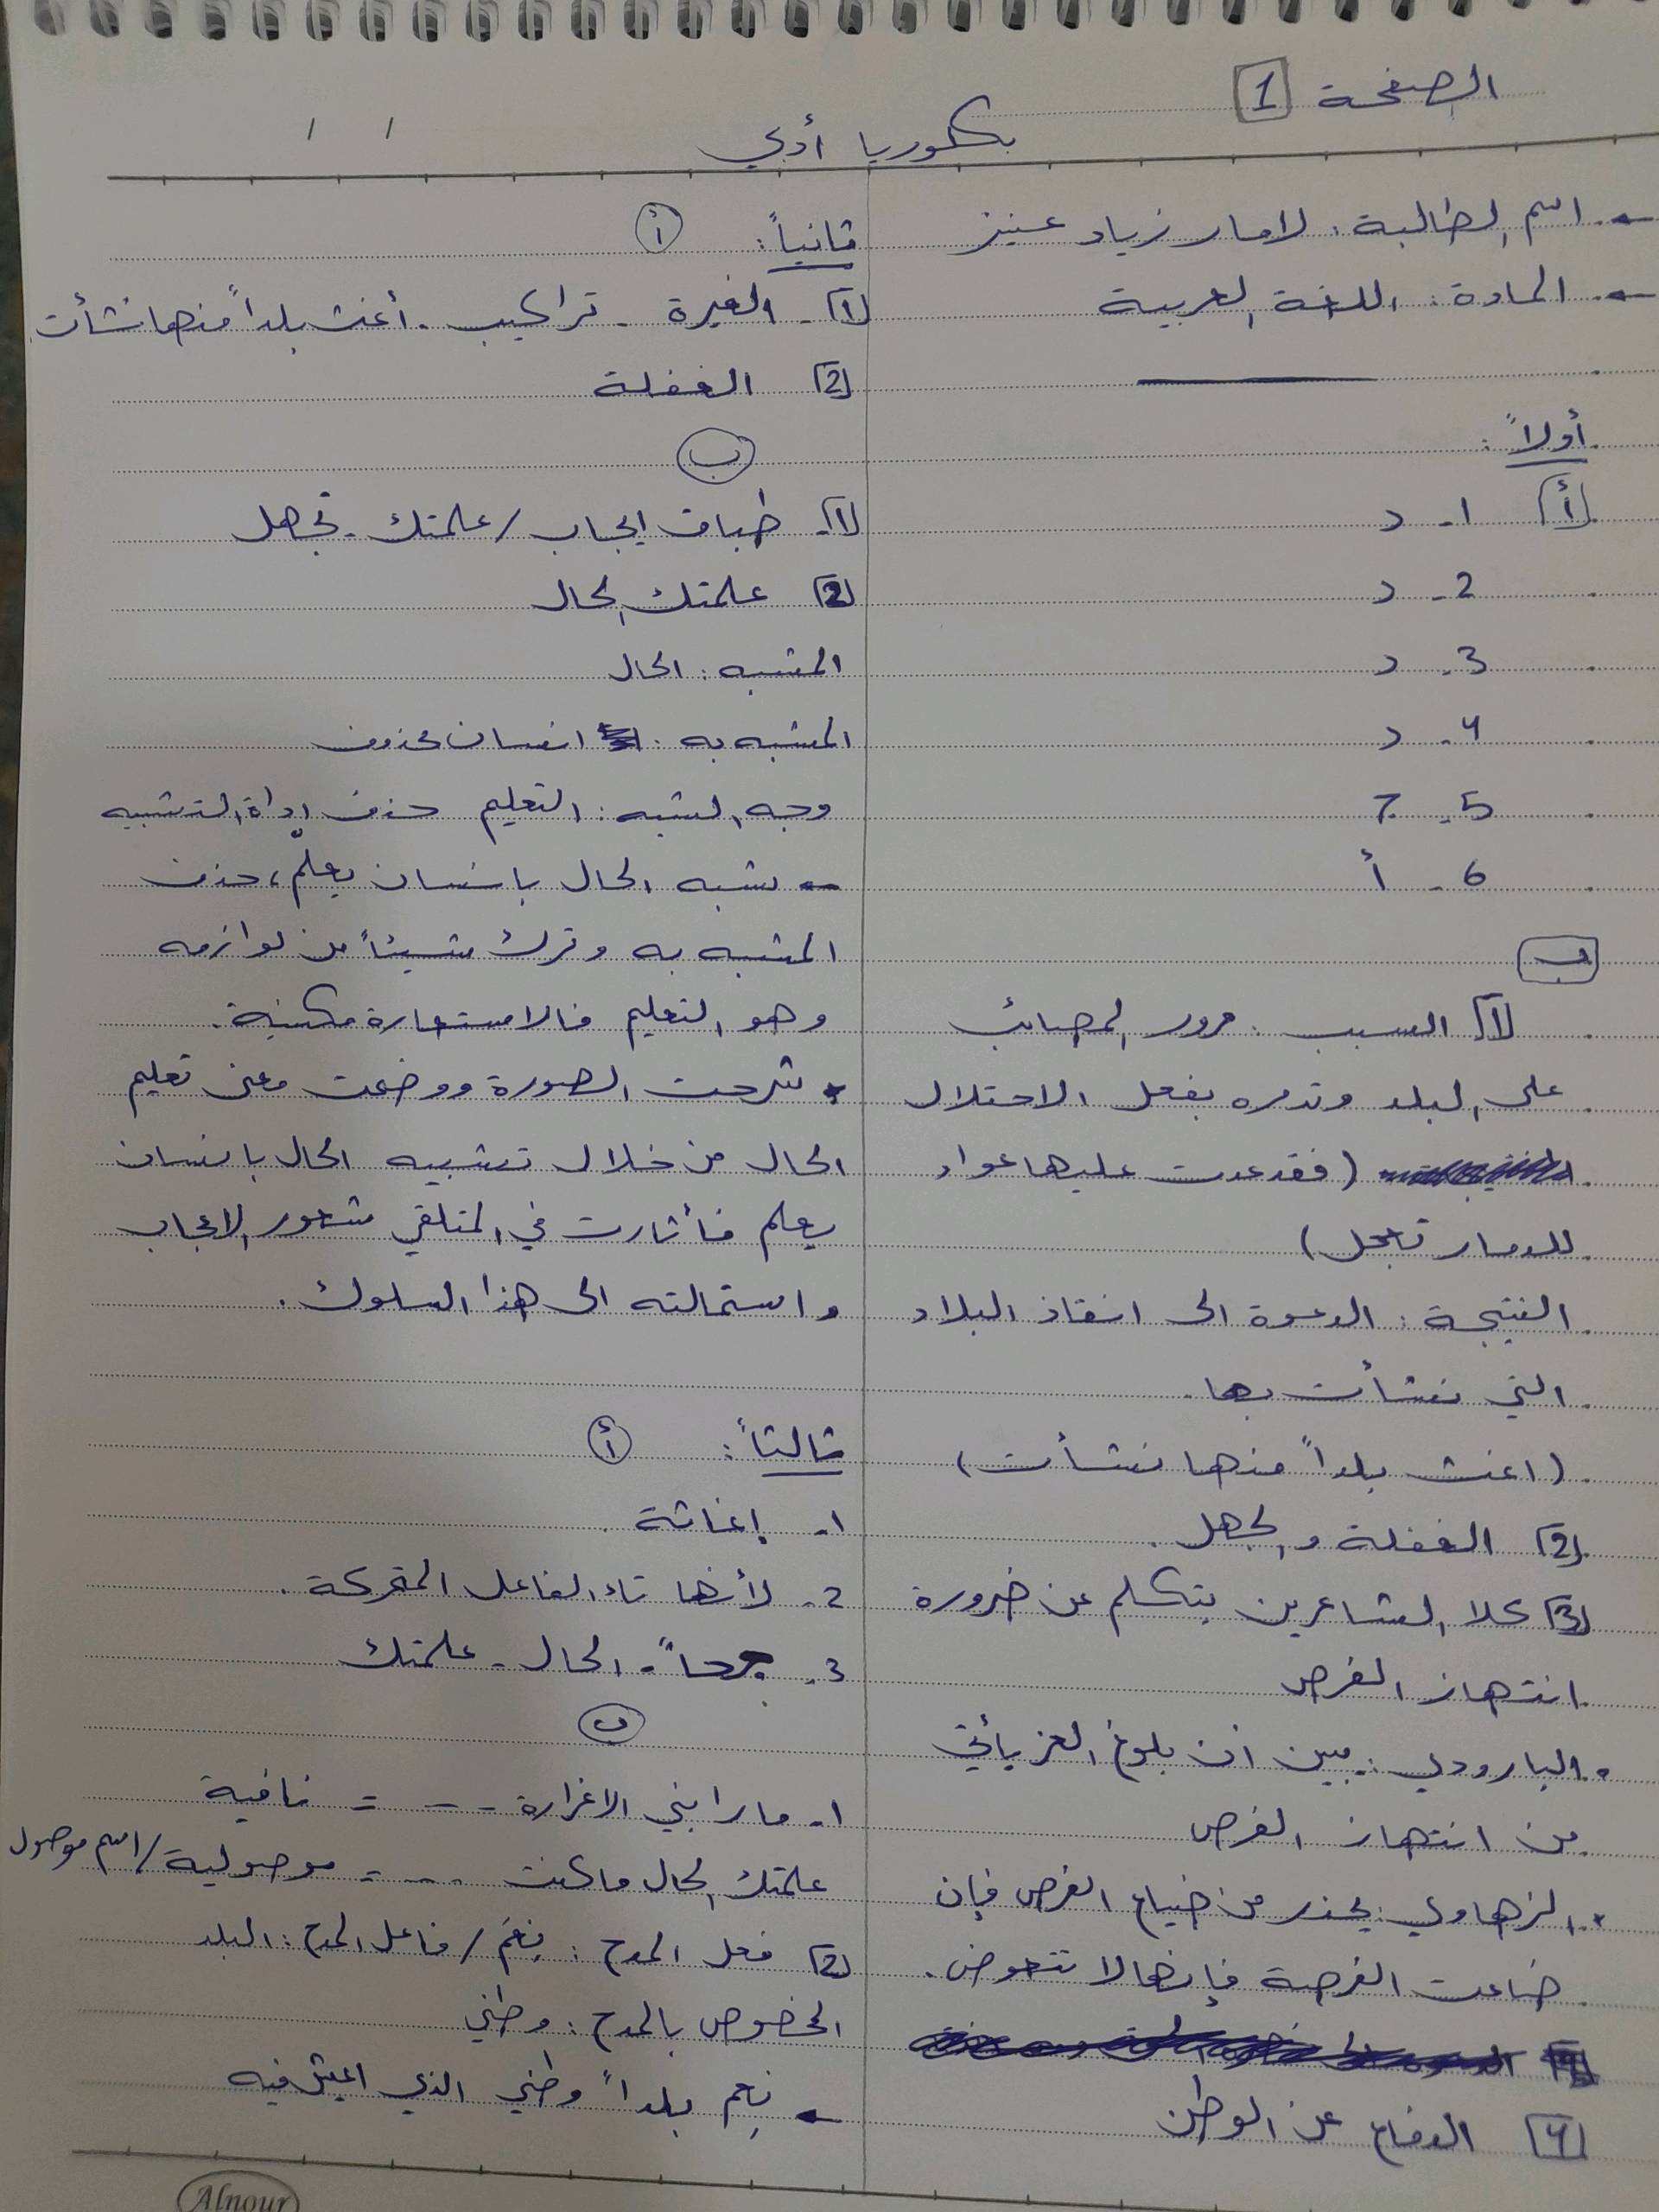 الصفحة 1
بكلوريا أدبي
/ /
- اسم الطالبة: لامار زياد
- المادة: اللغة العربية
أولاً:
أ 1- د
2- د
3- د
4- د
5- ج
6- أ
ب
1 السبب: مرور المصائب
على البلد وتدمره بفعل الاحتلال
(فقد عدت عليها عواد
للدمار تعجل)
النتيجة: الدعوة الى انقاذ البلاد
التي نشأت بها.
(اغث بلداً منها نشأت)
2 الغفلة والجهل.
3 كلا الشاعرين يتكلم عن ضرورة
انتهاز الفرص
• البارودي: يبين ان بلوغ العز يأتي
من انتهاز الفرص
• الزهاوي: يحذر من ضياع الفرص فإن
ضاعت الفرصة فإنها لا تتعوض.
4 الدفاع عن الوطن
ثانياً: أ
1- الغيرة - تراكيب - أغث بلداً منها نشأت
2 الغفلة
ب
1- طباق ايجاب / علمتك - تجهل
2 علمتك الحال
المشبه: الحال
المشبه به: انسان محذوف
وجه الشبه: التعليم حذف اداة التشبيه
- شبه الحال بانسان يعلم، حذف
المشبه به وترك شيئاً من لوازمه
وهو التعليم فالاستعارة مكنية.
• شرحت الصورة ووضحت معنى تعليم
الحال من خلال تشبيه الحال بانسان
يعلم فأثارت في المتلقي شعور الاعجاب
واستمالته الى هذا السلوك.
ثالثاً: أ
1- إغاثة
2- لأنها تاء الفاعل المتحركة.
3- الحال - علمتك
ب
1- ما رابني الا غرارة --- = نافية
علمتك الحال ما كنت --- = موصولية / اسم موصول
2 فعل المدح: نِعْمَ / فاعل المدح: البلد
المخصوص بالمدح: وطني
- نِعم بلداً وطني الذي اعيش فيه
Alnour